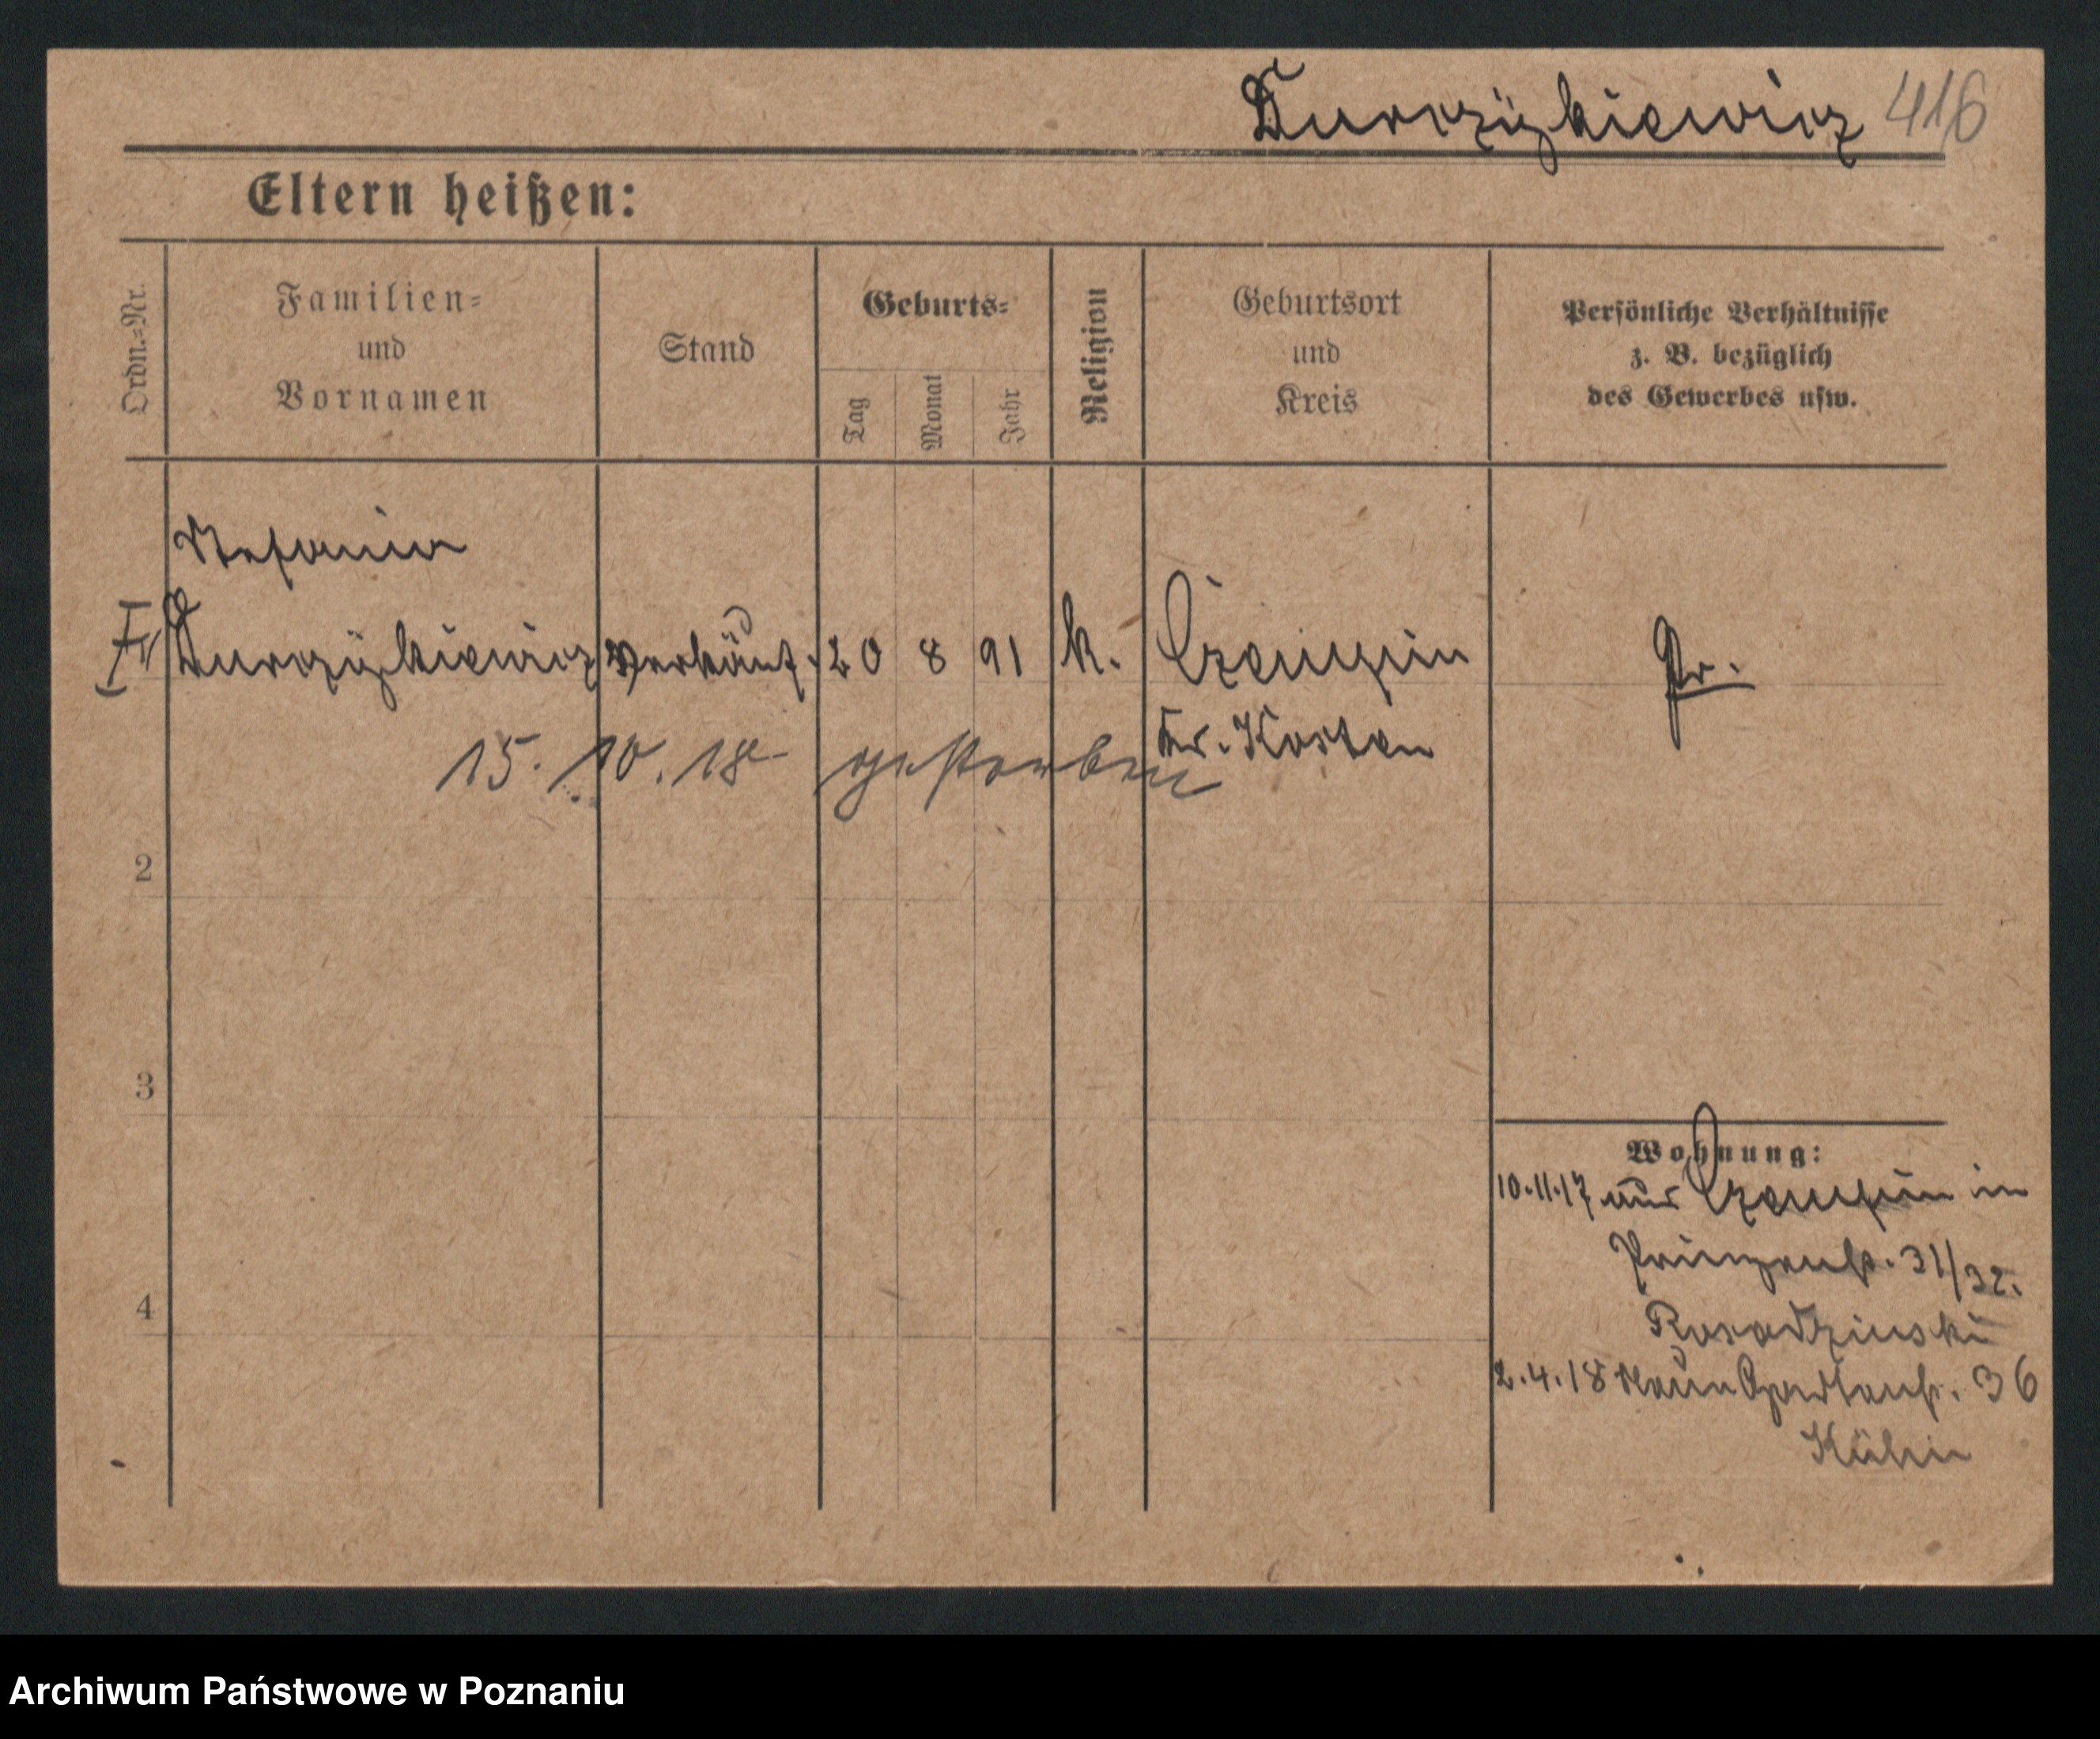 416
Eltern heißen:
Ordn.-Nr.
Familien-
und
Vornamen
Stand
Geburts-
Tag
Monat
Jahr
Religion
Geburtsort
und
Kreis
Persönliche Verhältnisse
z. B. bezüglich
des Gewerbes usw.
Stefania
Verkäuf. 20 8 91 k. Czempin
Pr.
Kr. Kosten
15. 10. 18 gestorben
2
3
4
Wohnung:
10.11.17 aus Czempin in
Prinzenstr. 31/32.
2.4.18 36
Kühn
Archiwum Państwowe w Poznaniu